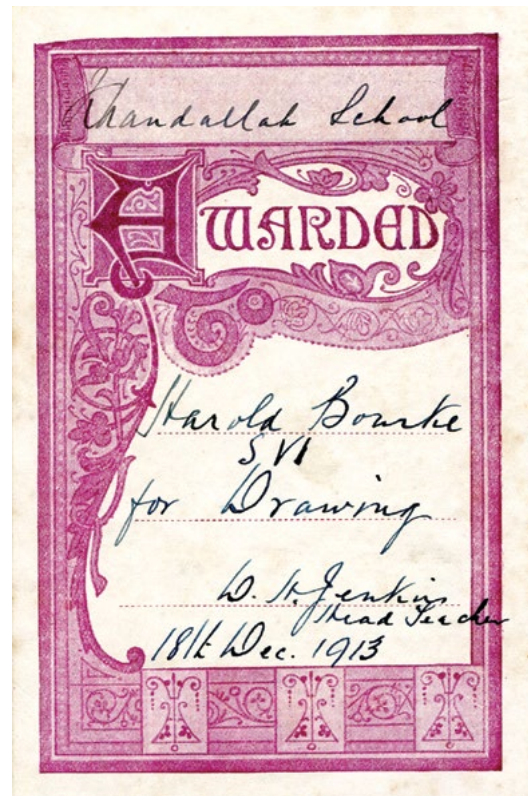 Khandallah School
AWARDED
To
Harold Bourke
S VI
for Drawing
W. H. Jenkins
Head Teacher
18th Dec. 1913